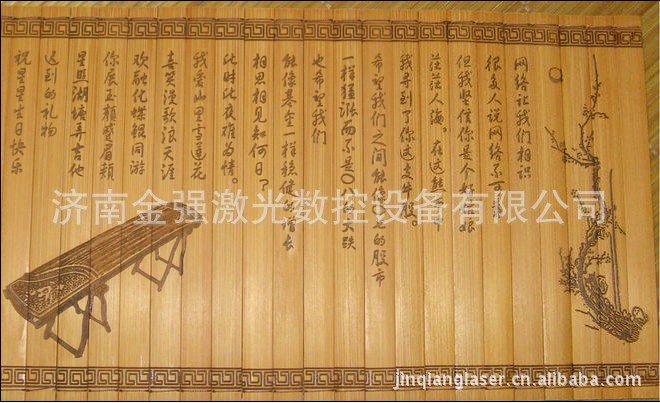 网络让我们相识
很多人说网络不可
但我坚信你是个好姑娘
茫茫人海。在这熊
我寻到了你这支牛股。
希望我们之间能像07的股市
一样猛涨而不是08的大跌
也希望我们
能像基金一样稳健的增长
相思相见知何日？
此时此夜难为情。
我爱山里雪莲花
喜笑漫歌浪天涯
欢融化蝶银同游
你展玉颜蹙眉颊
星照湖塘弄吉他
迟到的礼物
祝星星生日快乐
济南金强激光数控设备有限公司
jinqianglaser.cn.alibaba.com